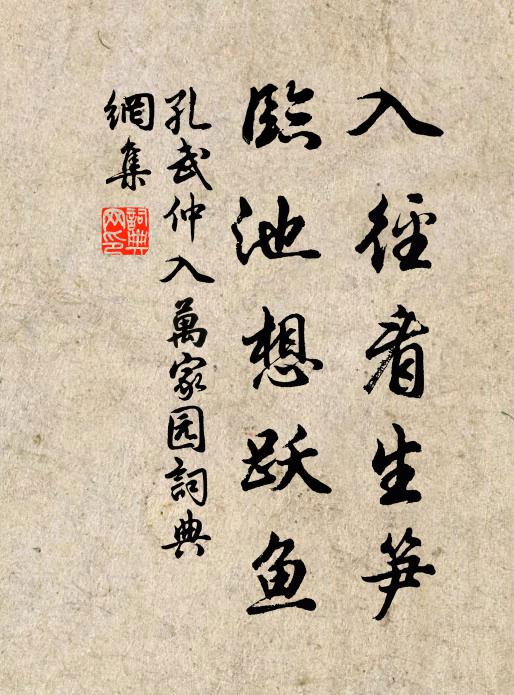 入径看生笋
临池想跃鱼
孔武仲入萬家园詞典
網集
詞典
网印